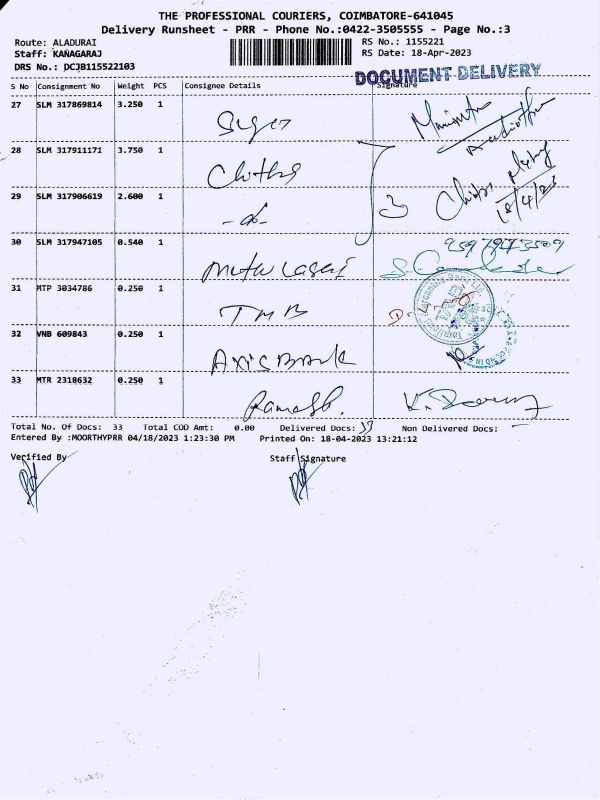 THE PROFESSIONAL COURIERS, COIMBATORE-641045
Delivery Runsheet - PRR - Phone No.:0422-3505555 - Page No.:3
Route: ALADURAI
RS No.: 1155221
Staff: KANAGARAJ
RS Date: 18-Apr-2023
DRS No.: DCJB115522103
DOCUMENT DELIVERY
S No Consignment No Weight PCS Consignee Details Signature
27 SLM 317869814 3.250 1
28 SLM 317911171 3.750 1
29 SLM 317906619 2.600 1 -do-
18/4/23
30 SLM 317947105 0.540 1
31 MTP 3034786 0.250 1 TMB
32 VNB 609843 0.250 1 Axis Bank
33 MTR 2318632 0.250 1 Ramesh.
Total No. Of Docs: 33 Total COD Amt: 0.00 Delivered Docs: 33 Non Delivered Docs: —
Entered By :MOORTHYPRR 04/18/2023 1:23:30 PM Printed On: 18-04-2023 13:21:12
Verified By Staff Signature